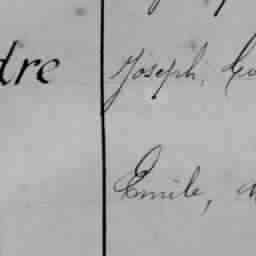 dre
Joseph, 
Emile,